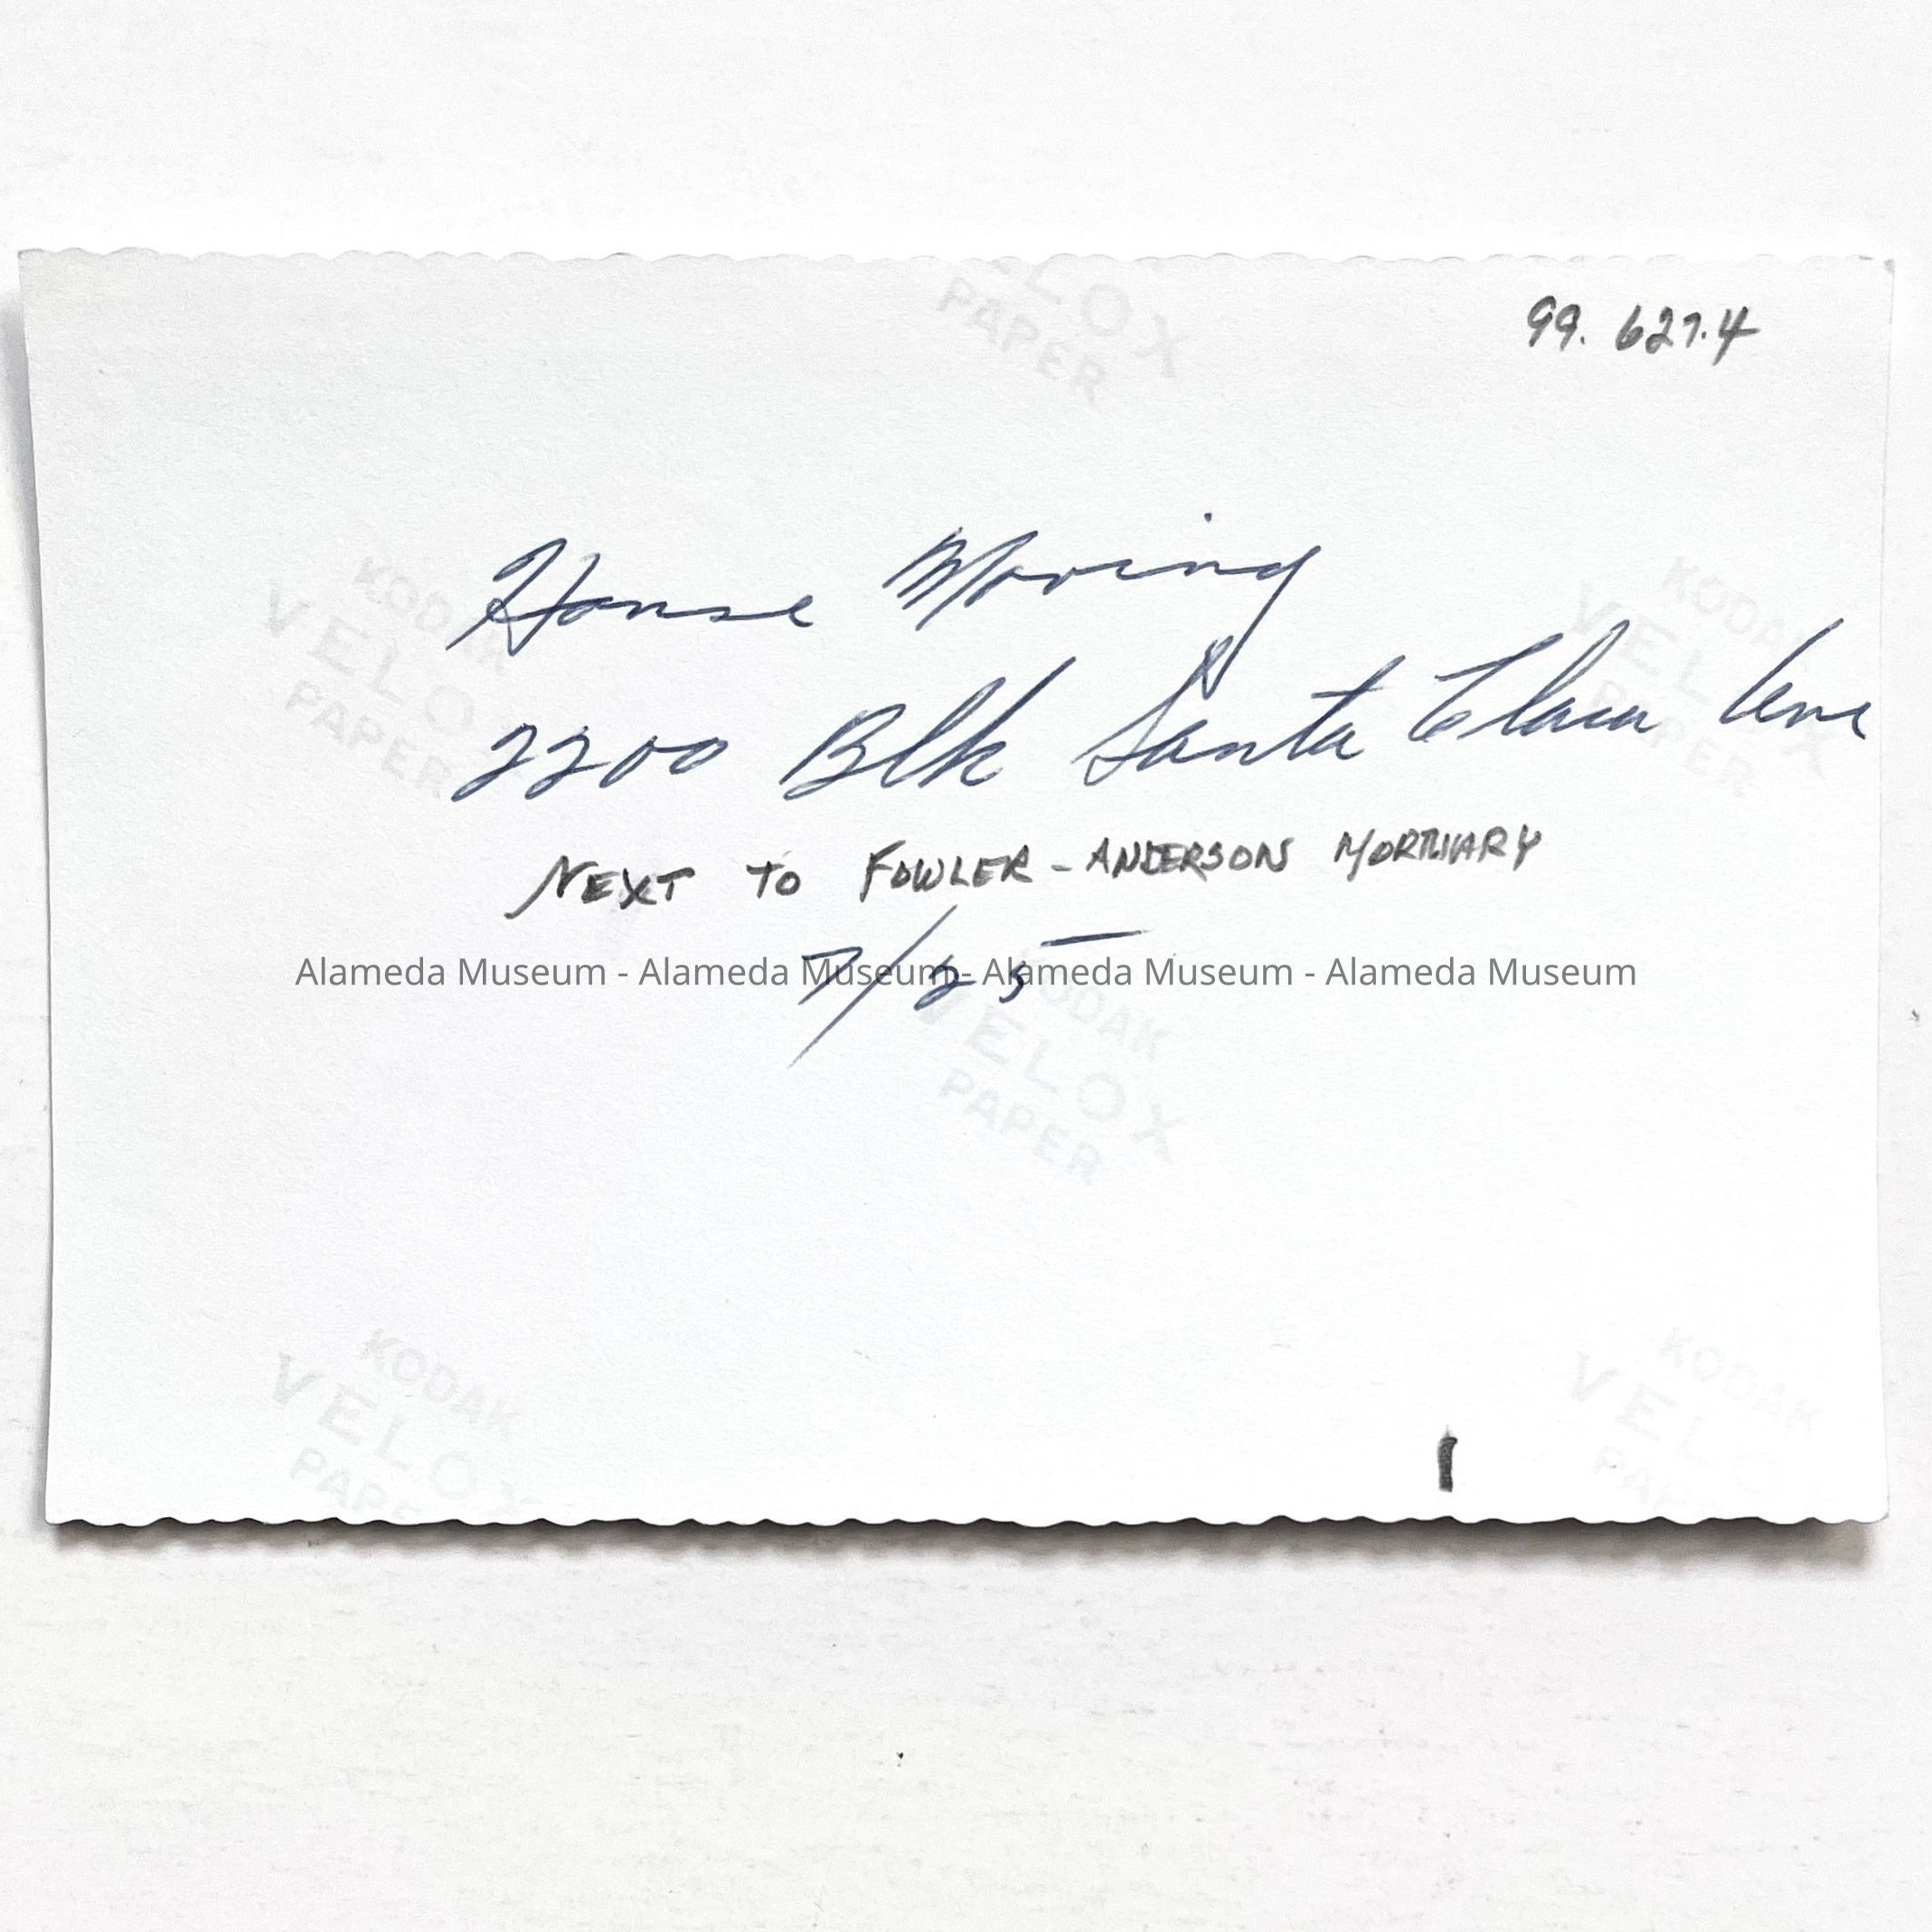 LOX
PAPER
99. 627.4
House Moving
KODAK
VELOX
PAPER
KODAK
VELOX
PAPER
2200 Blk Santa Clara Ave
NEXT TO FOWLER - ANDERSON MORTUARY
7/25
Alameda Museum - Alameda Museum - Alameda Museum - Alameda Museum
KODAK
VELOX
PAPER
KODAK
VELOX
PAPE
KODAK
VELO
PAP